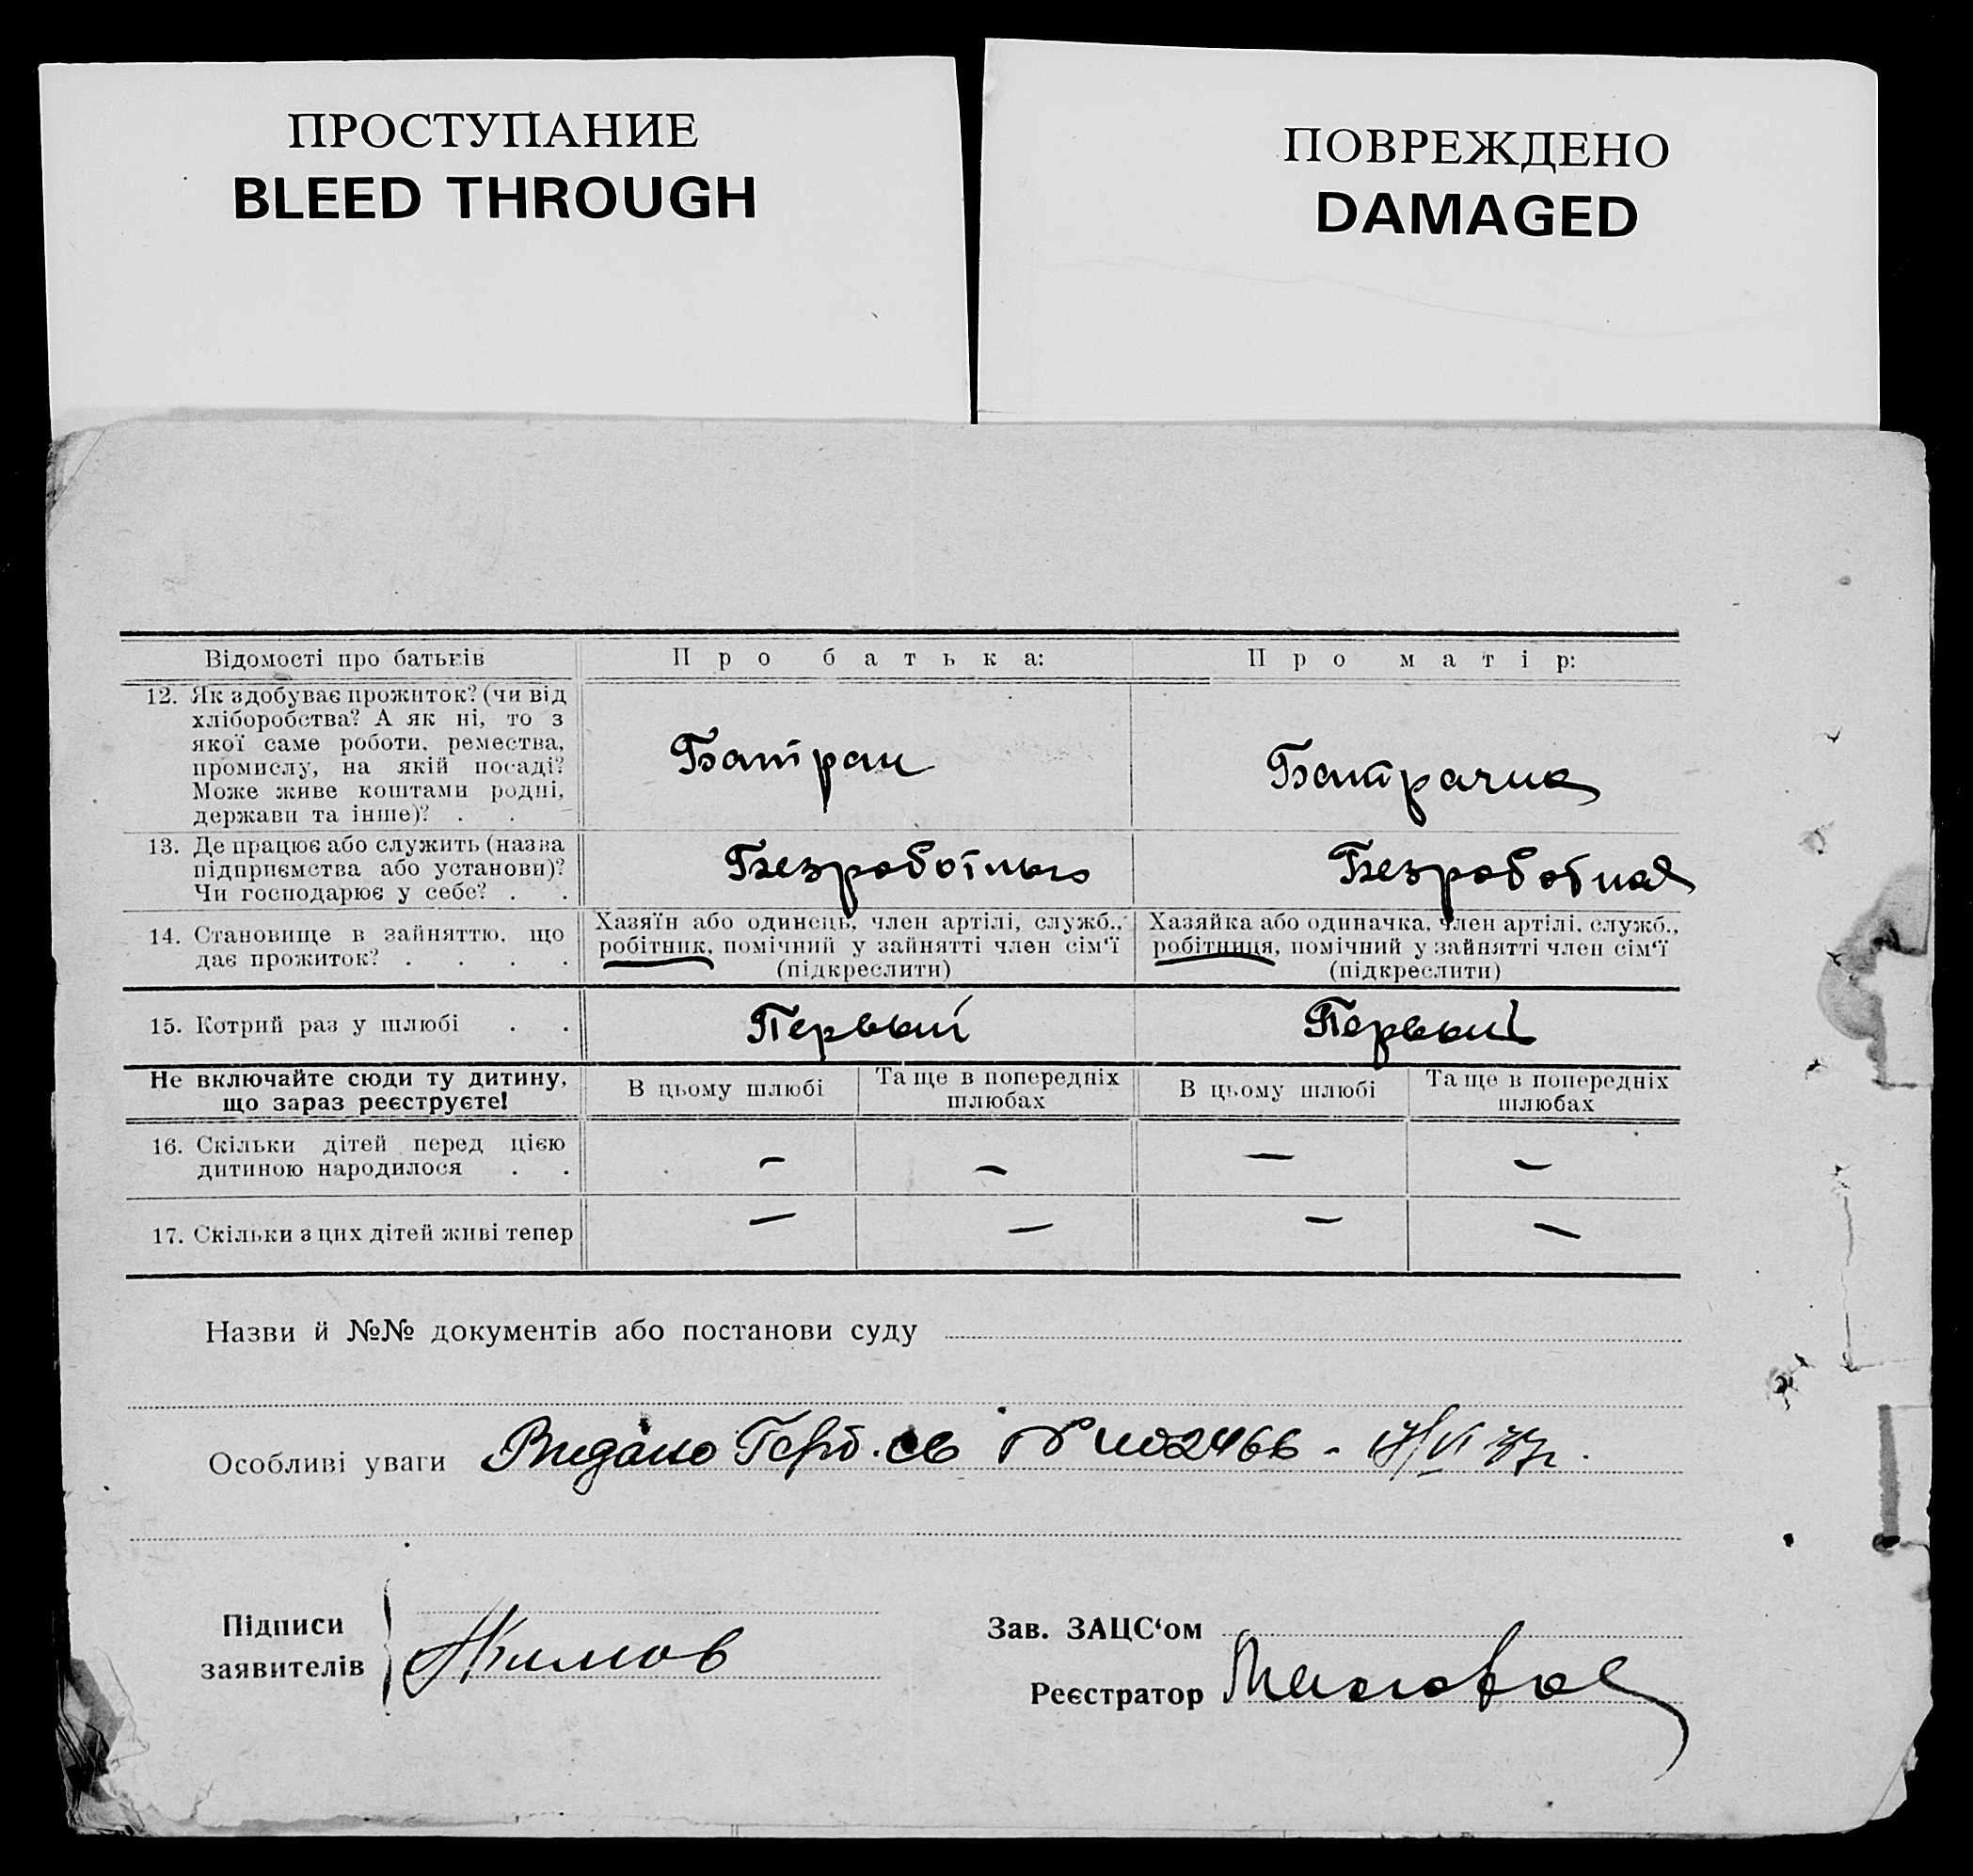 ПРОСТУПАНИЕ
BLEED THROUGH
ПОВРЕЖДЕНО
DAMAGED
Відомості про батьків
Про батька:
Про матір:
12. Як здобуває прожиток? (чи від
хліборобства? А як ні, то з
якої саме роботи, ремества,
промислу, на якій посаді?
Може живе коштами родні,
держави та інше)? . .
Батрак
Батрачка
13. Де працює або служить (назва
підприємства або установи)?
Чи господарює у себе? . .
Безработный
Безработная
14. Становище в зайняттю, що
дає прожиток? . . . .
Хазяїн або одинець, член артілі, служб.,
робітник, помічний у зайнятті член сім'ї
(підкреслити)
Хазяйка або одиначка, член артілі, служб.,
робітниця, помічний у зайнятті член сім'ї
(підкреслити)
15. Котрий раз у шлюбі . .
Первый
Первый
Не включайте сюди ту дитину,
що зараз реєструєте!
В цьому шлюбі
Та ще в попередніх
шлюбах
В цьому шлюбі
Та ще в попередніх
шлюбах
16. Скільки дітей перед цією
дитиною народилося . .
— — — —
17. Скільки з цих дітей живі тепер
— — — —
Назви й №№ документів або постанови суду
Особливі уваги Видано Герб. св
Підписи
заявителів
Акимов
Зав. ЗАЦС‘ом
Реєстратор